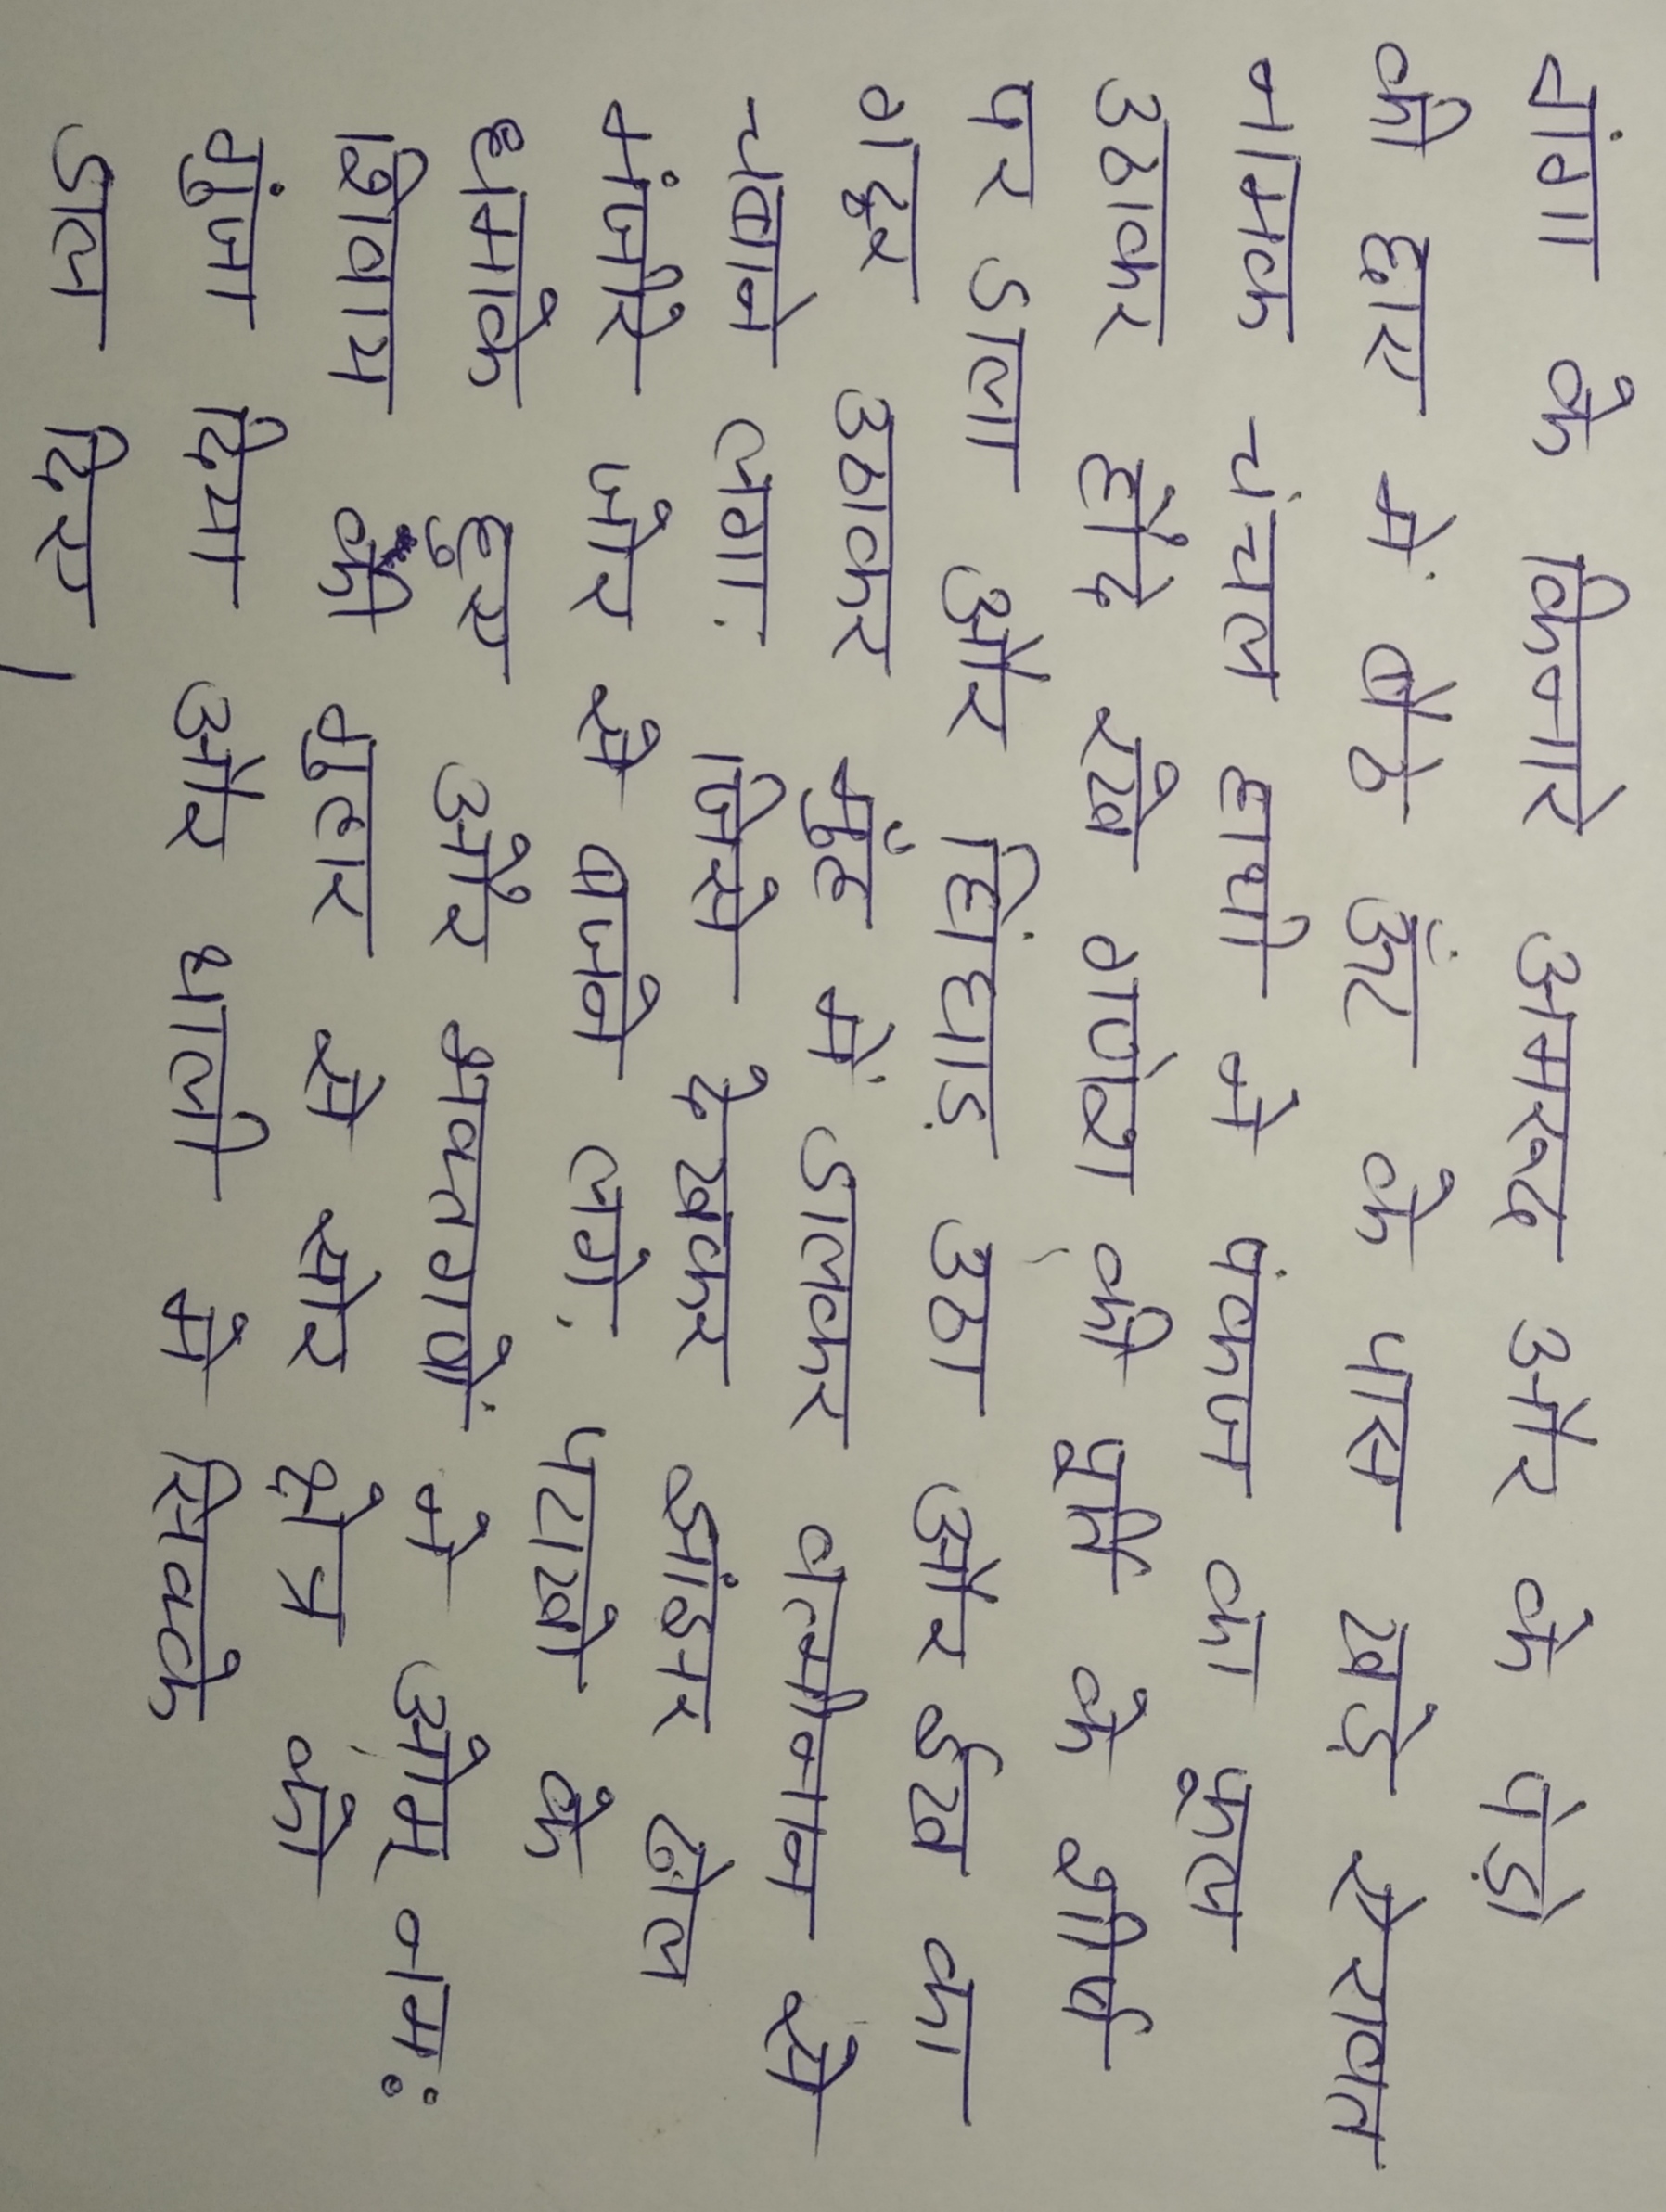 गंगा के किनारे अमरूद और के पेड़ो
की छाए में बैठे ऊँट के पास खड़े ऐरावत
नामक चंचल हाथी ने पंकज का फूल
उठाकर हौदे रखे गणेश की पूर्ति के शीर्ष
पर डाला और घिंघाड़ उठा और ईख का
गट्ठर उठाकर मुँह में डालकर वत्मीनान से
चबाने लगा. जिसे देखकर झांझर ढोल
मंजीरे जोर से बजने लगे, पटाखो के
धमाके हुए और भक्तगणों ने ओम् नमः
शिवाय की गुहार से सोर क्षेत्र को
गुंजा दिया और थाली मे सिक्के
डाल दिए।